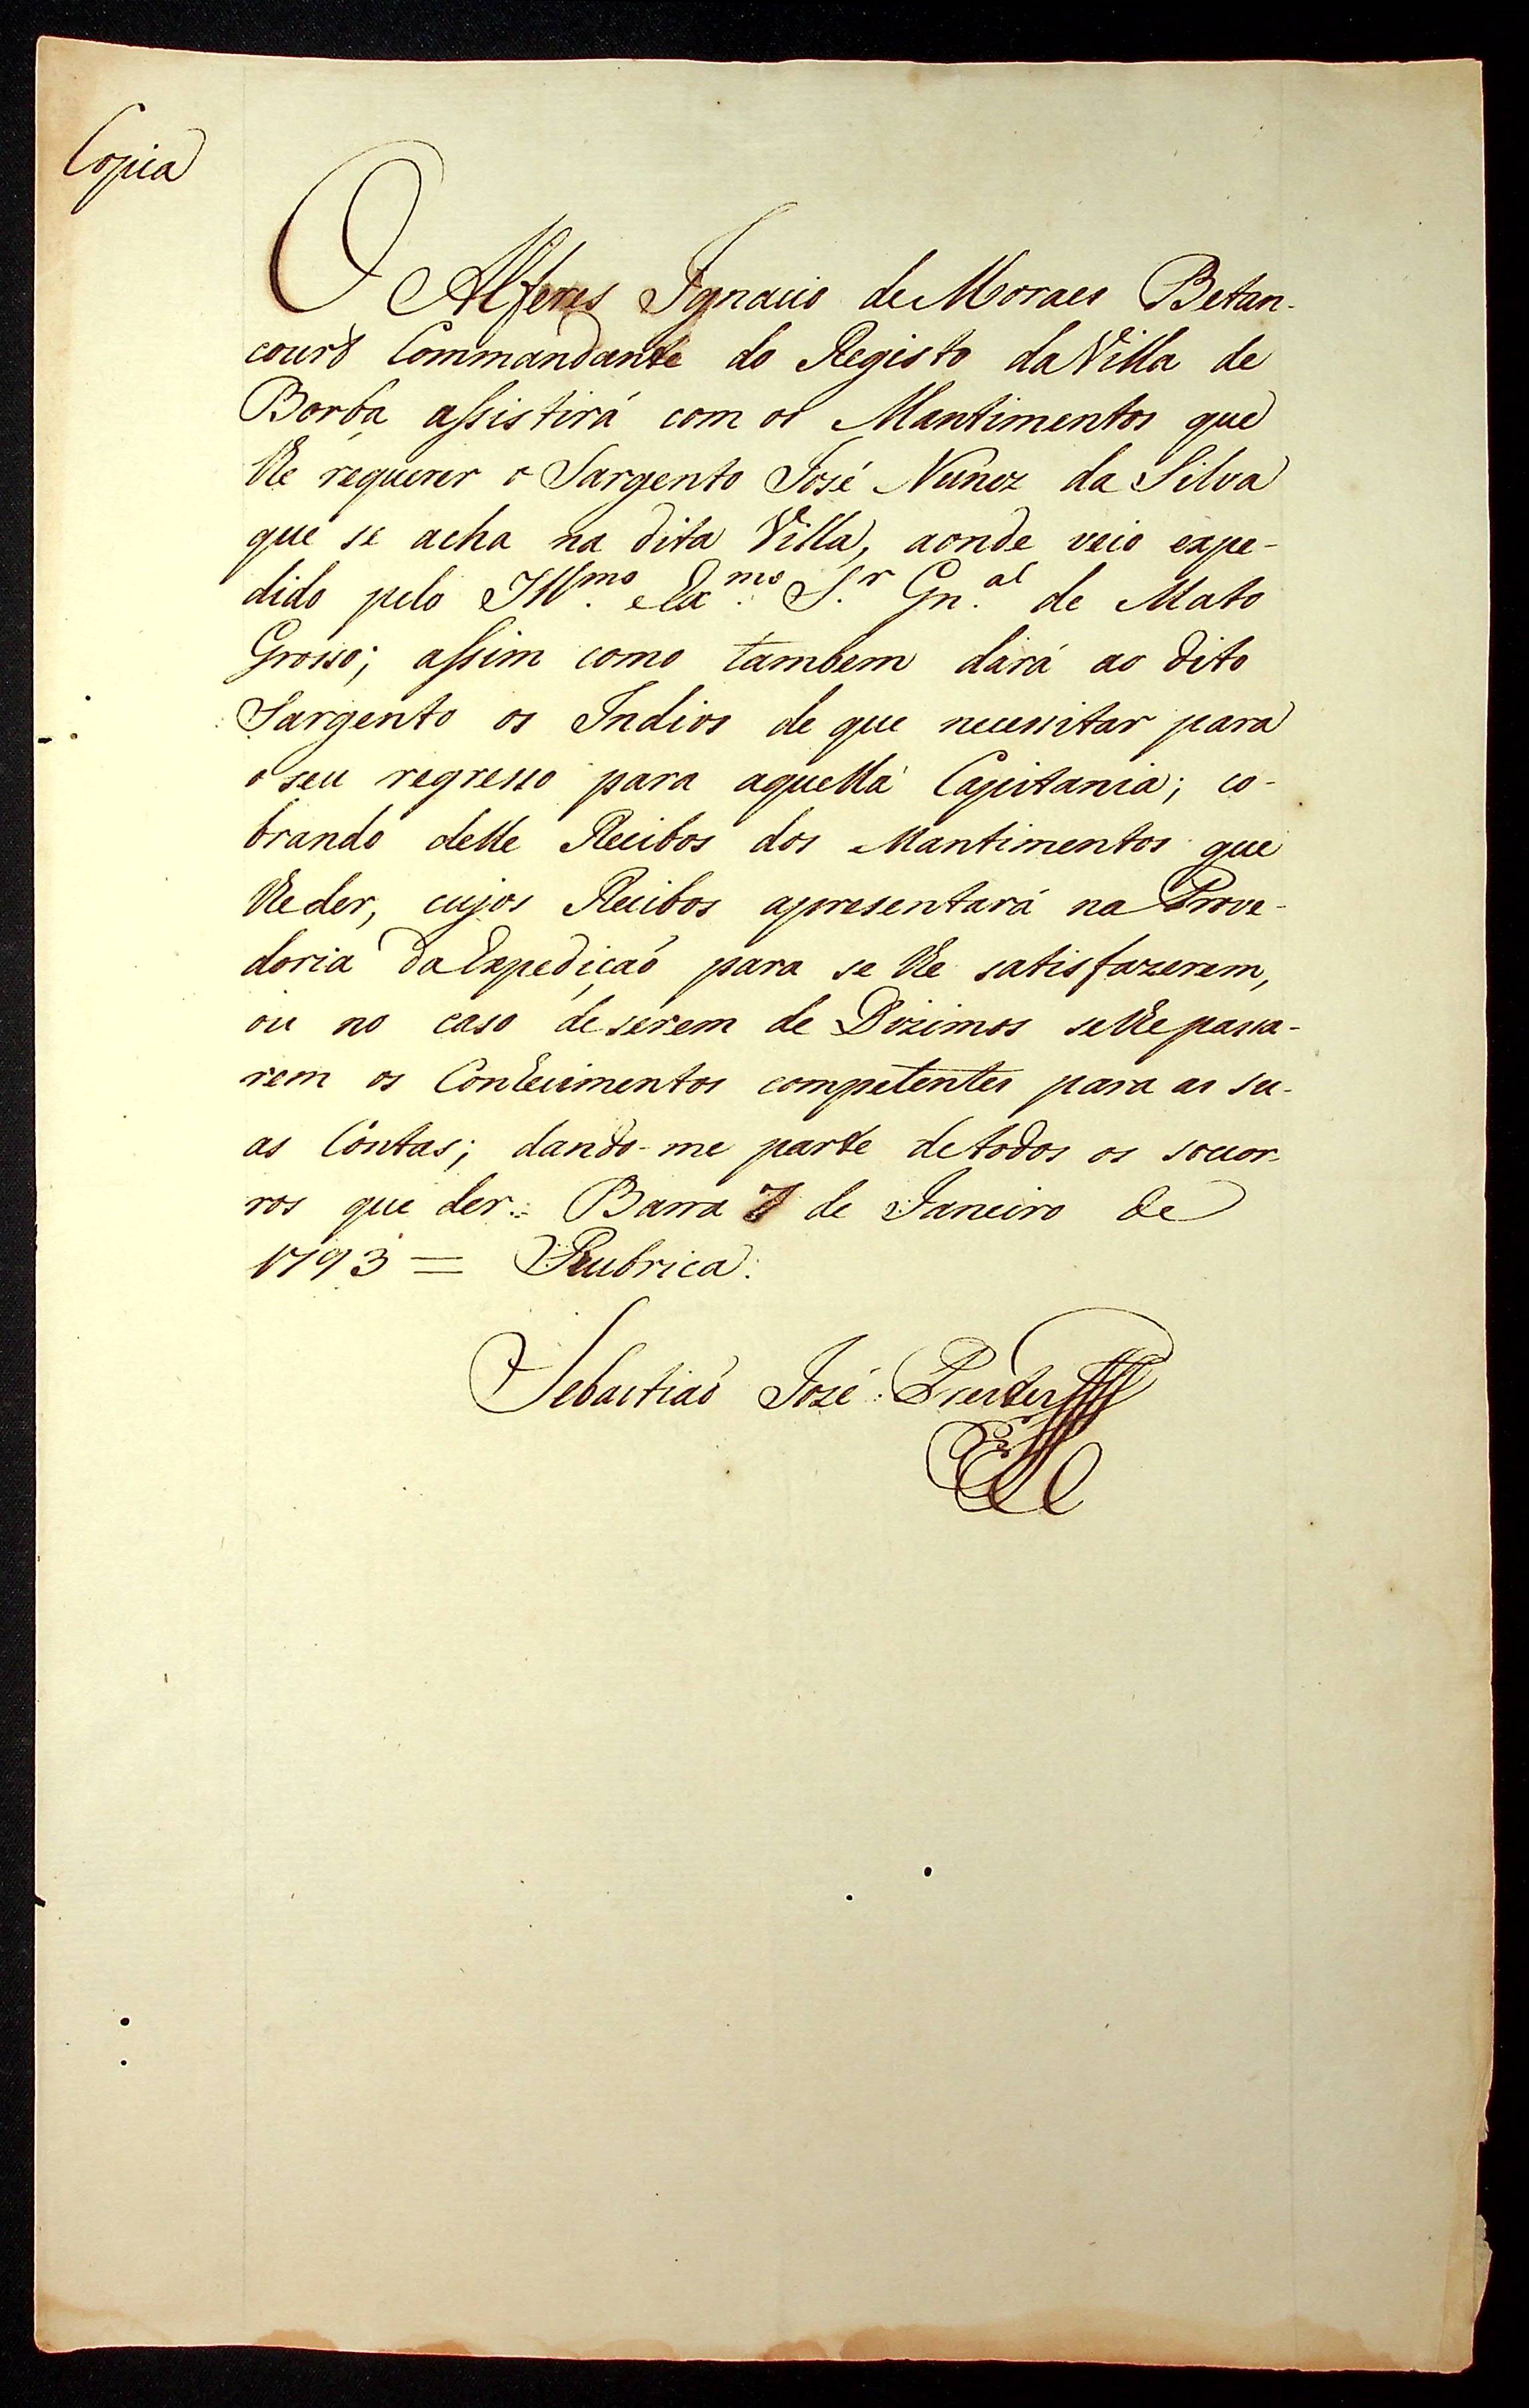 Copia
O Alferes Ignacio de Moraes Betan-
court Commandante do Registo da Villa de
Borba assistirá com os Mantimentos que
lhe requerer o Sargento José Nunez da Silva
que se acha na dita Villa, aonde veio expe-
dido pelo Ill.mo e Ex.mo S.r Gn.al de Mato
Grosso; assim como tambem dará ao dito
Sargento os Indios de que necessitar para
o seu regresso para aquella Capitania; co-
brando delle Recibos dos Mantimentos que
lhe der, cujos Recibos apresentará na Prove-
doria da Expediçaõ para se lhe satisfazerem,
ou no caso de serem de Dizimos se lhe passa-
rem os Conhecimentos competentes para as su-
as Contas; dando-me parte de todos os socor-
ros que der. Barra 7 de Janeiro de
1793 = Rubrica.
Sebastiaõ José Prestes